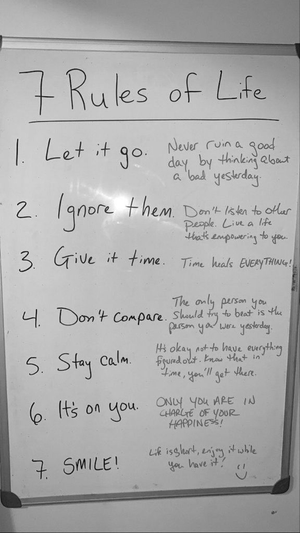 7 Rules of Life
1. Let it go.
Never ruin a good
day by thinking about
a bad yesterday.
2. Ignore them.
Don't listen to other
people. Live a life
that's empowering to you.
3. Give it time.
Time heals EVERYTHING!
4. Don't compare.
The only person you
should try to beat is the
person you were yesterday.
5. Stay calm.
It's okay not to have everything
figured out. Know that in
time, you'll get there.
6. It's on you.
ONLY YOU ARE IN
CHARGE OF YOUR
HAPPINESS!
7. SMILE!
Life is short, enjoy it while
you have it!